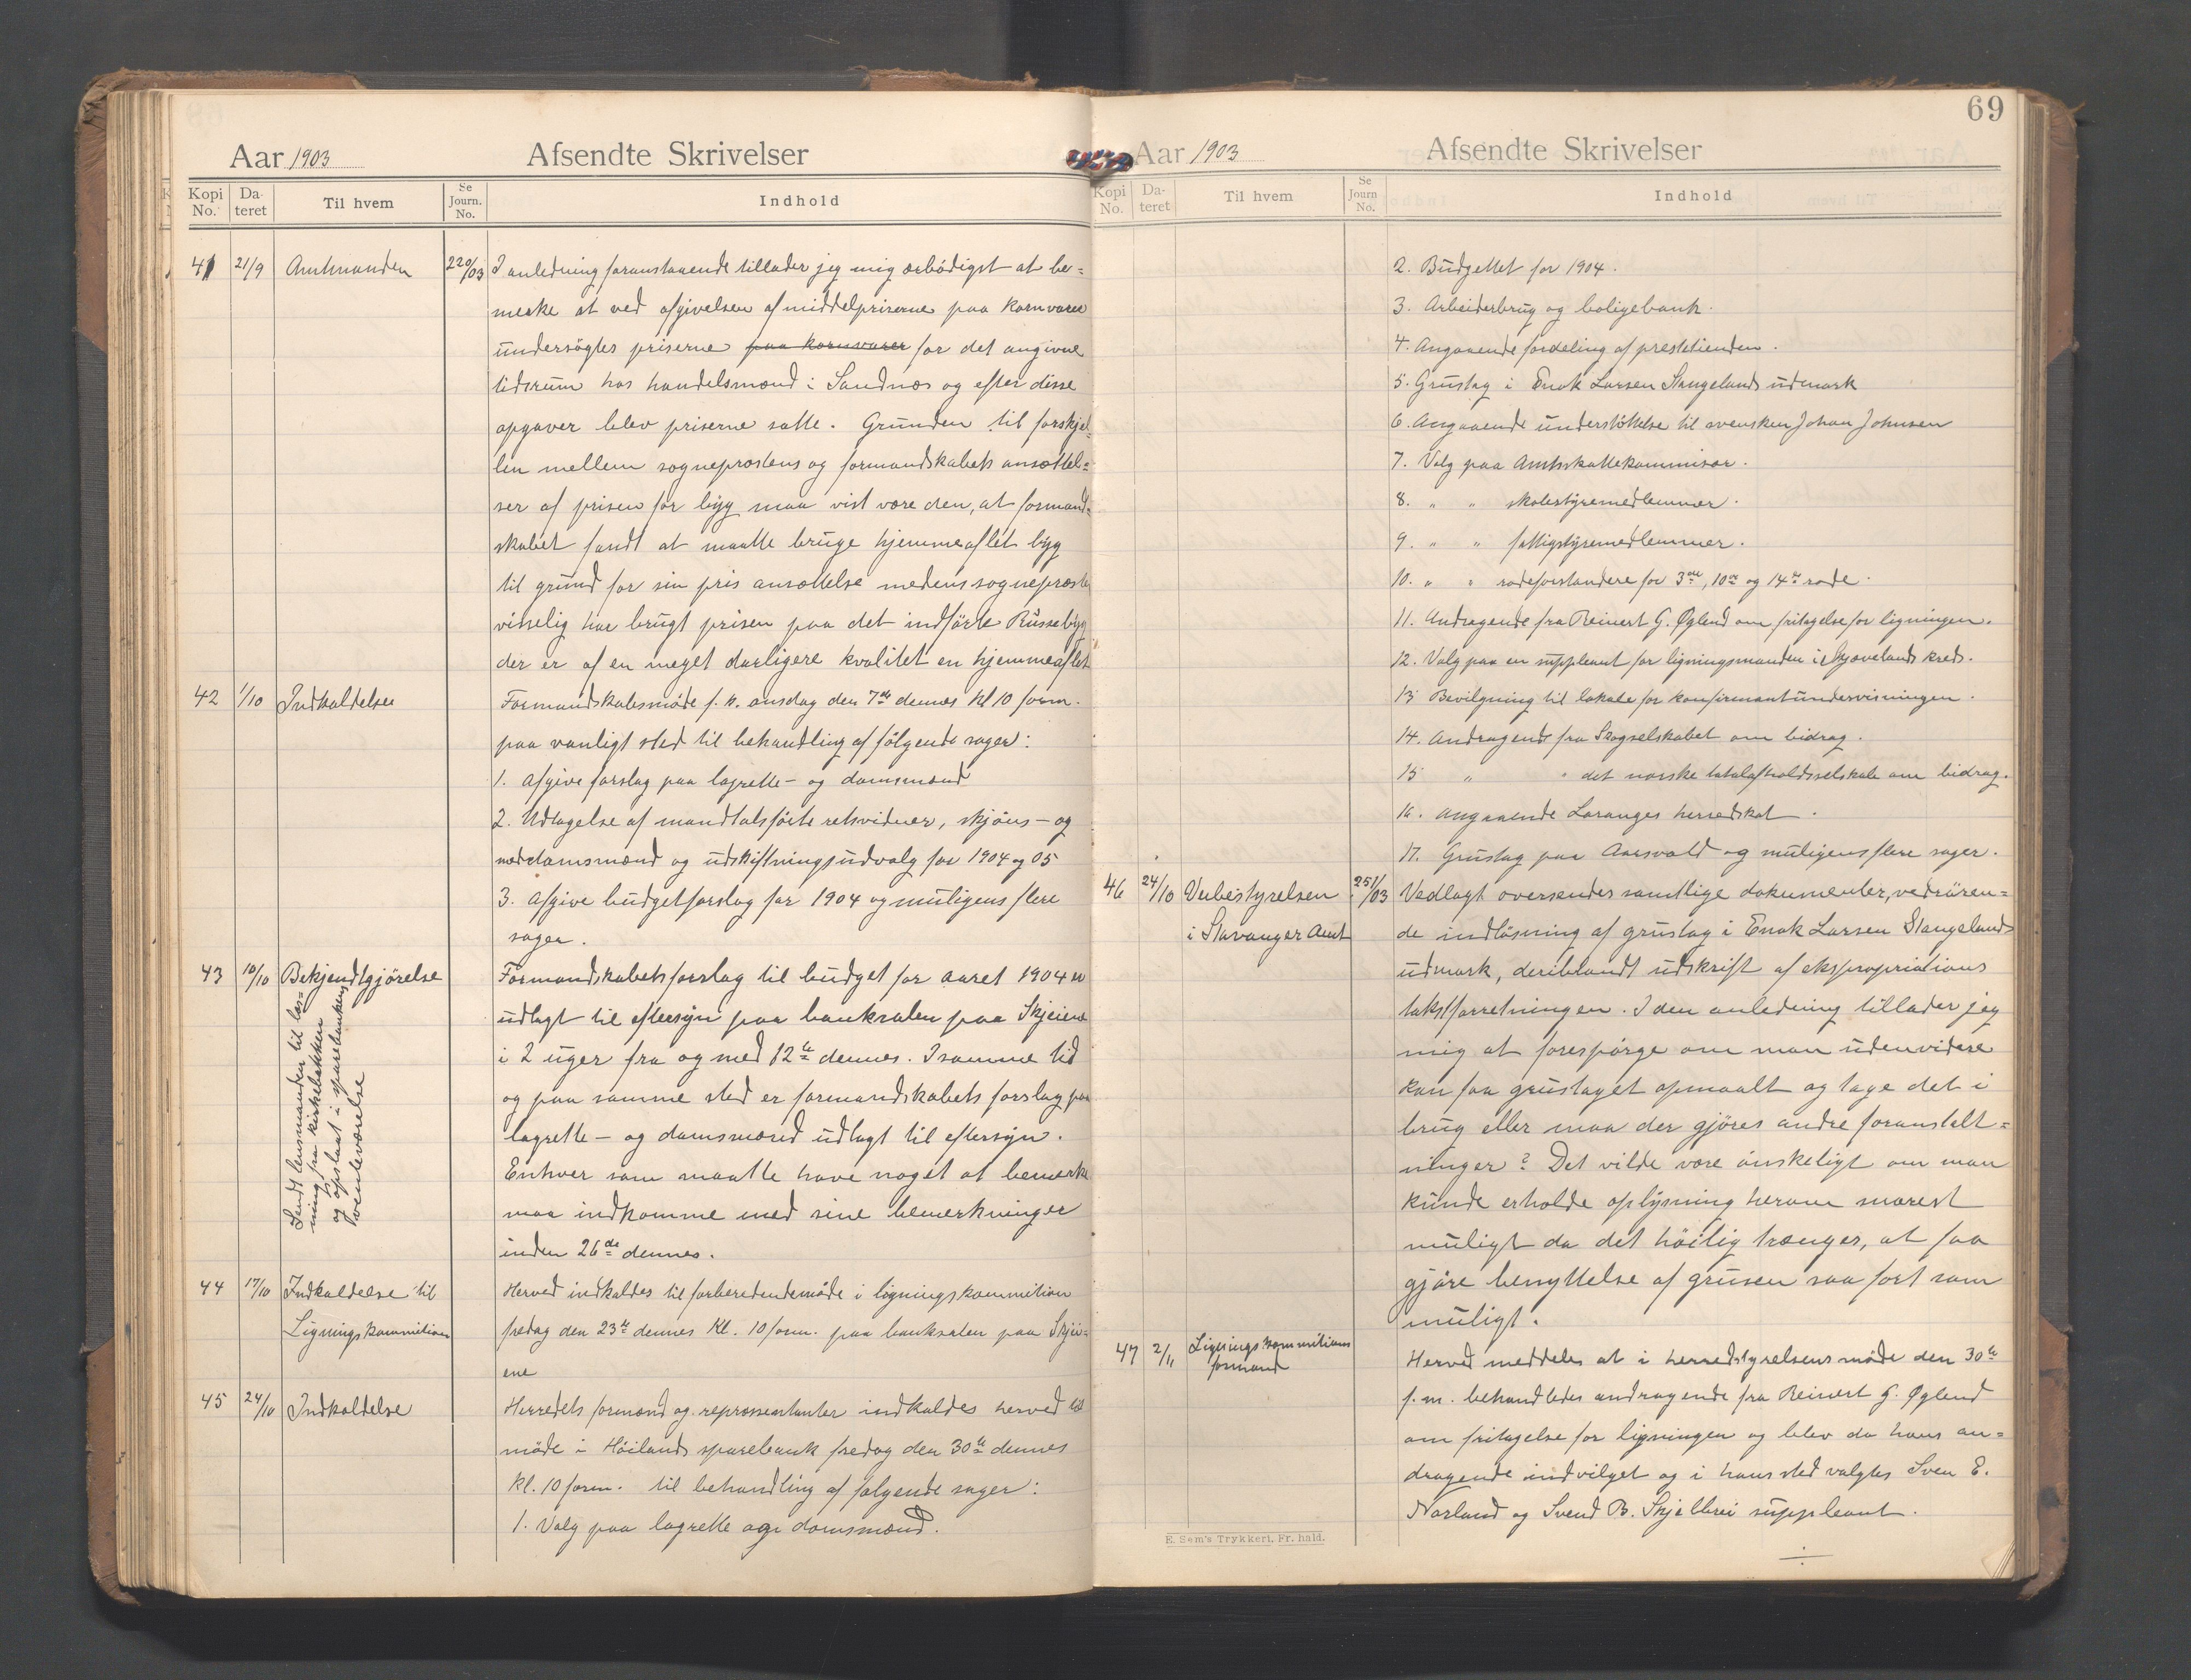 Aar 1903
Afsendte Skrivelser
Kopi No.
Da-teret
Til hvem
Se Journ. No.
Indhold
41 21/9 Amtmanden 220/03 I anledning foranstaaende tillader jeg mig ærbödigst at be=
merke at ved afgivelsen af middelpriserne paa kornvarer
undersögtes priserne paa kornvarer for det angivne
tidsrum hos handelsmænd i Sandnæs og efter disse
opgaver blev priserne satte. Grunden til forskjel=
len mellem sogneprestens og formandskabets ansættel=
ser af prisen for byg maa vist være den, at formand=
skabet fandt at maatte bruge hjemmeaflet byg
til grund for sin pris ansættelse medens sognepresten
visselig har brugt prisen paa det indförte Russebyg
der er af en meget darligere kvalitet en hjemmeaflet
42 1/10 Indkaldelse Formandskabsmöde f. k. onsdag den 7de dennes kl 10 form.
paa vanligt sted til behandling af fölgende sager:
1. Afgive forslag paa lagrette- og domsmænd
2. Udtagelse af mandtalsförte retsvidner, skjöns- og
meddomsmænd og udskiftningsudvalg for 1904 og 05
3. Afgive budgetforslag for 1904 og muligens flere
sager.
43 10/10 Bekjendtgjörelse Formandskabets forslag til budget for aaret 1904 er
udlagt til eftersyn paa banksalen paa Skjeiene
i 2 uger fra og med 12te dennes. I samme tid
og paa samme sted er formandskabets forslag paa
lagrette- og domsmænd udlagt til eftersyn.
Enhver som maatte have noget at bemerke
maa indkomme med sine bemerkninger
inden 26de dennes.
Sendt lensmanden til læs=
ning fra kirkebakken
og opslaat i sparebankens
44 17/10 Indkaldelse til Herved indkaldes til forberedendemöde i ligningskommition
Ligningskommitionen fredag den 23de dennes Kl. 10 form. paa banksalen paa Skjei=
ene
45 24/10 Indkaldelse Herredets formænd og repræsentanter indkaldes herved til
möde i Höilands sparebank fredag den 30te dennes
kl. 10 form. til behandling af fölgende sager:
1. Valg paa lagrette og domsmænd.
69
Aar 1903
Afsendte Skrivelser
Kopi No.
Da-teret
Til hvem
Se Journ No.
Indhold
2. Budgettet for 1904.
3. Arbeiderbrug og boligebank.
4. Angaaende fordeling af prestetienden.
5. Grustag i Enok Larsen Stangelands udmark
6. Angaaende understöttelse til svensken Johan Johnsen
7. Valg paa Amtsskattekommisær.
8. " " skolestyremedlemmer.
9. " " fattigstyremedlemmer.
10. " " rodeforstandere for 3die, 10de og 14de rode.
11. Andragende fra Reinert G. Øglend om fritagelse for ligningen.
12. Valg paa en suppleant for ligningsmanden i Skjævelands kreds.
13 Bevilgning til lokale for konfirmantundervisningen.
14. Andragende fra Skogselskabet om bidrag.
15 " " det norske totalafholdsselskab om bidrag.
16. Angaaende Laranges herredskat.
17. Grustag paa Aarsvold og muligens flere sager.
46 24/10 Veibestyrelsen 251/03 Vedlagt oversendes samtlige dokumenter, vedrören=
i Stavanger Amt de indlösning af grustag i Enok Larsen Stangelands
udmark, deriblandt udskrift af ekspropriations
takstforretningen. I den anledning tillader jeg
mig at forespörge om man udenvidere
kan faa grustaget opmaalt og tage det i
brug eller maa der gjöres andre foranstalt=
ninger? Det vilde være önskeligt om man
kunde erholde oplysning herom snarest
muligt da det höilig trænges, at faa
gjöre benyttelse af grusen saa fort som
muligt.
47 2/11 Ligningskommitions
formand
Herved meddeles at i herredstyrelsens möde den 30te
f. m. behandledes andragende fra Reinert G. Øglend
om fritagelse for ligningen og blev da hans an=
dragende indvilget og i hans sted valgtes Sven E.
Norland og Svend B. Skjelbrei suppleant.
E. Sem's Trykkeri, Fr. hald.